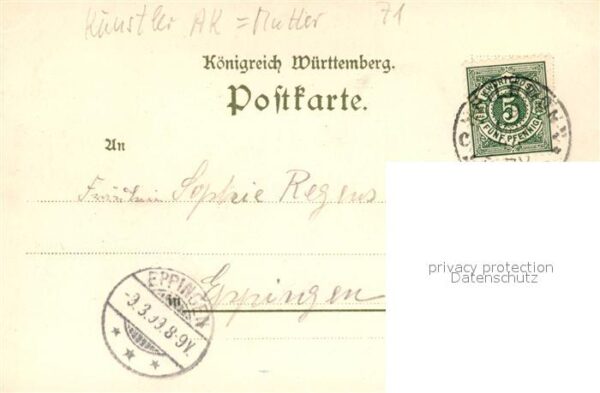 Künstler AK = Mutter 71
Königreich Württemberg.
Postkarte.
5
FÜNF PFENNIG
An
Fräulein Sophie Regens
privacy protection
Datenschutz
Eppingen
EPPINGEN
-3.3.99.8-9V.